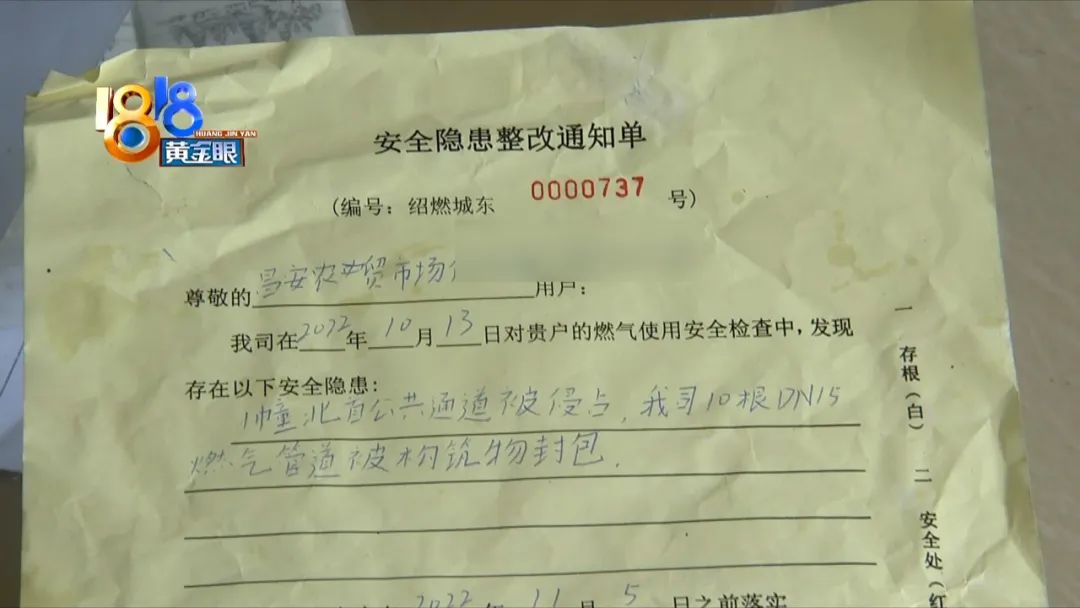 1818
HUANG JIN YAN
黄金眼
安全隐患整改通知单
(编号：绍燃城东 0000737 号)
尊敬的昌安农贸市场 用户：
我司在2022年10月13日对贵户的燃气使用安全检查中，发现
存在以下安全隐患：
1幢北首公共通道被侵占，我司10根DN15
燃气管道被构筑物封包．
2022年11月5日之前落实
一存根（白）二安全处（红